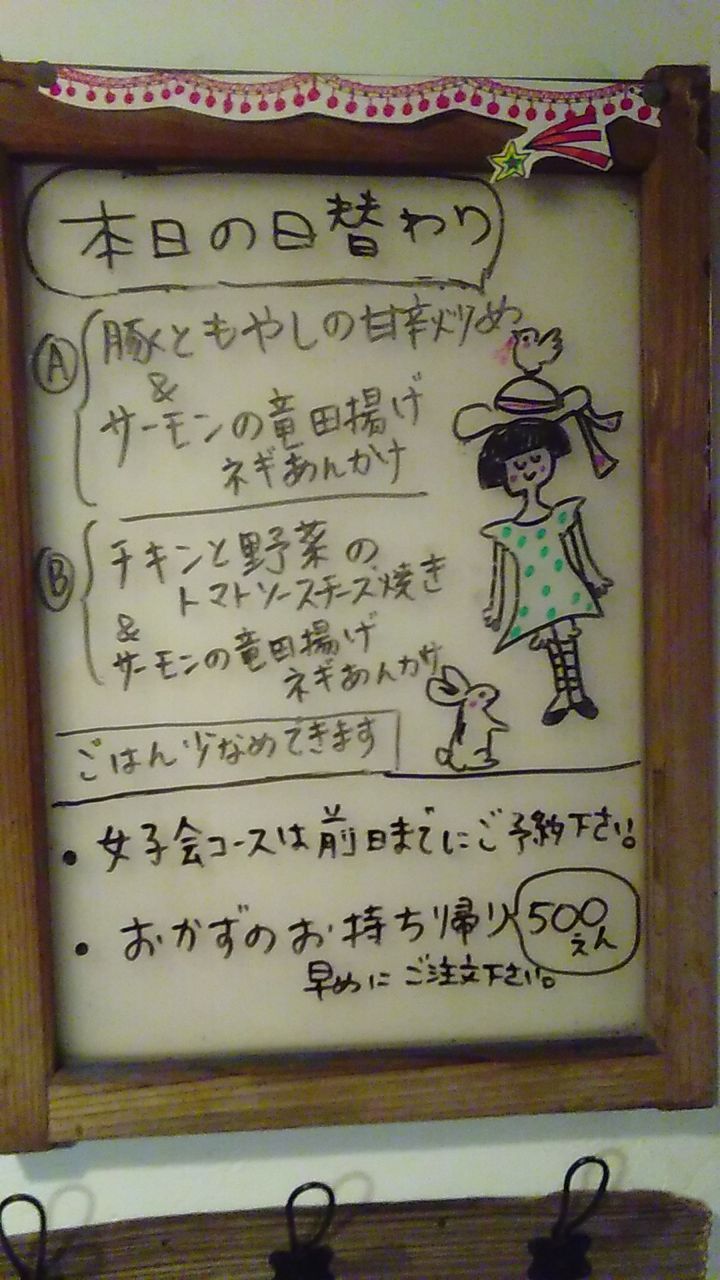 本日の日替わり
Ⓐ 豚ともやしの甘辛炒め
&
サーモンの竜田揚げ
ネギあんかけ
Ⓑ チキンと野菜の
トマトソースチーズ焼き
&
サーモンの竜田揚げ
ネギあんかけ
ごはん少なめできます
・女子会コースは前日までにご予約下さい。
・おかずのお持ち帰り 500えん
早めにご注文下さい。